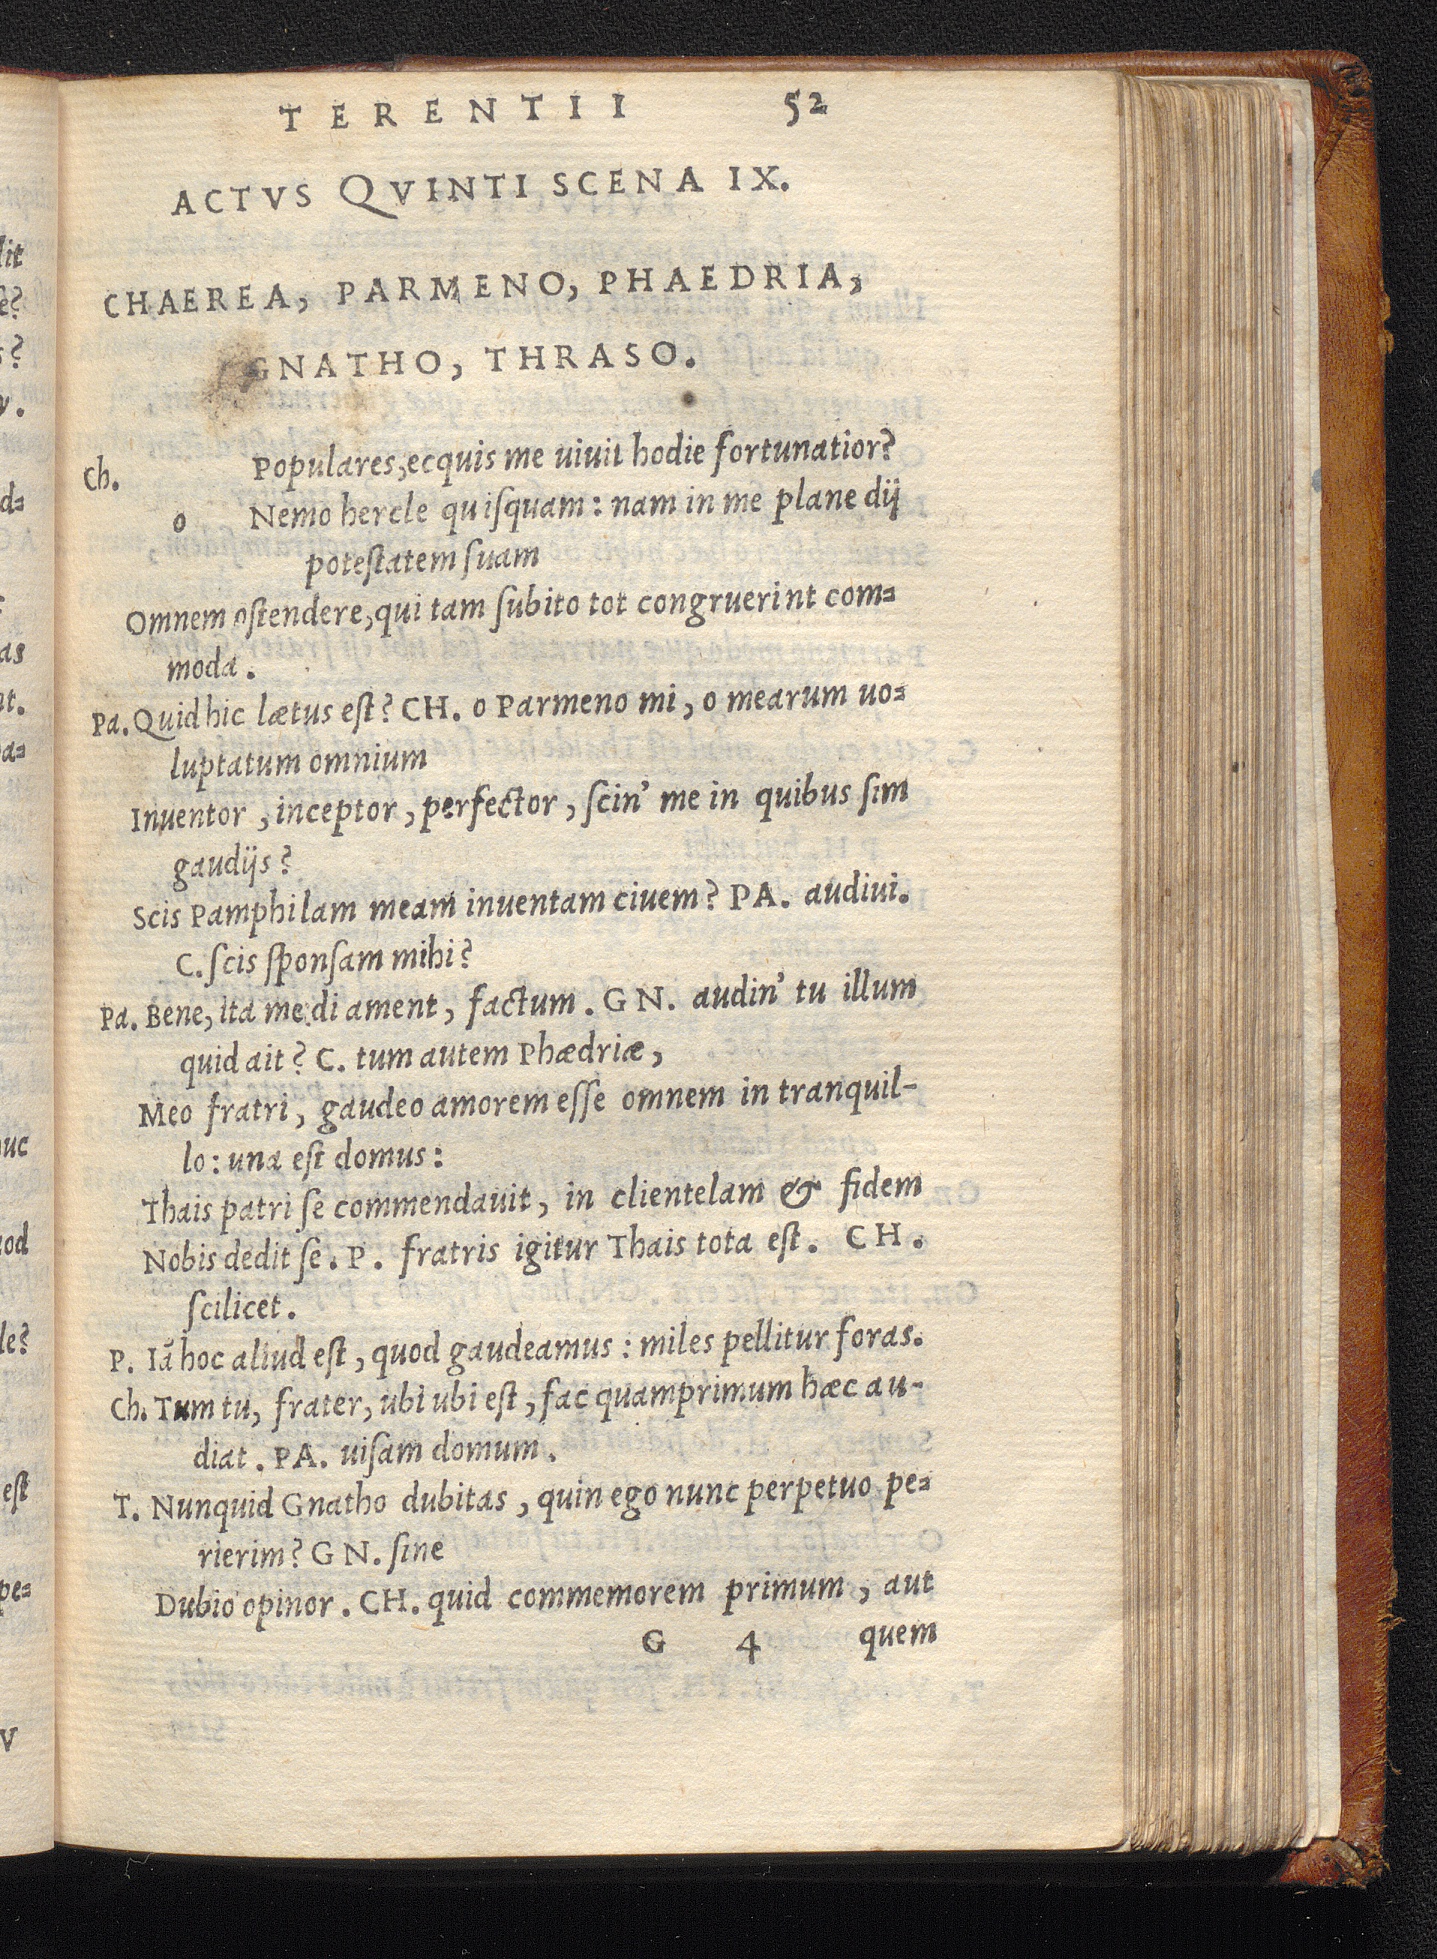 TERENTII 52
ACTVS QVINTI SCENA IX.
CHAEREA, PARMENO, PHAEDRIA,
GNATHO, THRASO.
Ch. Populares, ecquis me uiuit hodie fortunatior?
o Nemo hercle quiſquam: nam in me plane dij
poteſtatem ſuam
Omnem oſtendere, qui tam ſubito tot congruerint com=
moda.
Pa. Quid hic lætus eſt? CH. o Parmeno mi, o mearum uo=
luptatum omnium
Inuentor, inceptor, perfector, ſcin' me in quibus ſim
gaudijs?
Scis Pamphilam meam inuentam ciuem? PA. audiui.
C. ſcis ſponſam mihi?
Pa. Bene, ita me di ament, factum. GN. audin' tu illum
quid ait? C. tum autem Phædriæ,
Meo fratri, gaudeo amorem eſſe omnem in tranquil-
lo: una eſt domus:
Thais patri ſe commendauit, in clientelam & fidem
Nobis dedit ſe. P. fratris igitur Thais tota eſt. CH.
ſcilicet.
P. Iã hoc aliud eſt, quod gaudeamus: miles pellitur foras.
Ch. Tum tu, frater, ubi ubi eſt, fac quamprimum hæc au-
diat. PA. uiſam domum.
T. Nunquid Gnatho dubitas, quin ego nunc perpetuo pe=
rierim? GN. ſine
Dubio opinor. CH. quid commemorem primum, aut
G 4 quem